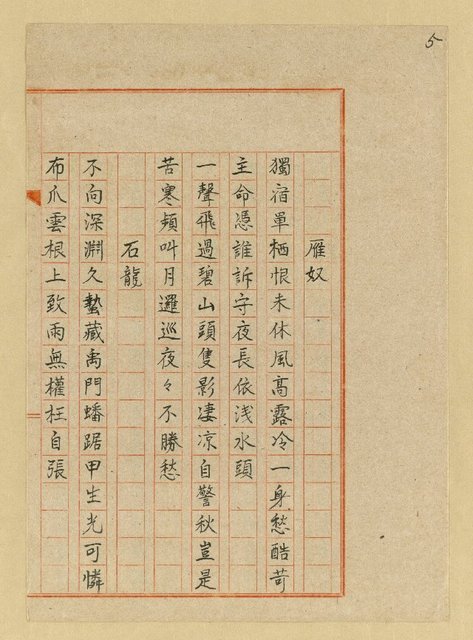 5
雁奴
獨宿單栖恨未休風高露冷一身愁酷苛
主命憑誰訴守夜長依浅水頭
一聲飛過碧山頭隻影凄凉自警秋豈是
苦寒頻叫月邏巡夜々不勝愁
石龍
不向深淵久蟄藏禹門蟠踞甲生光可憐
布爪雲根上致雨無權枉自張